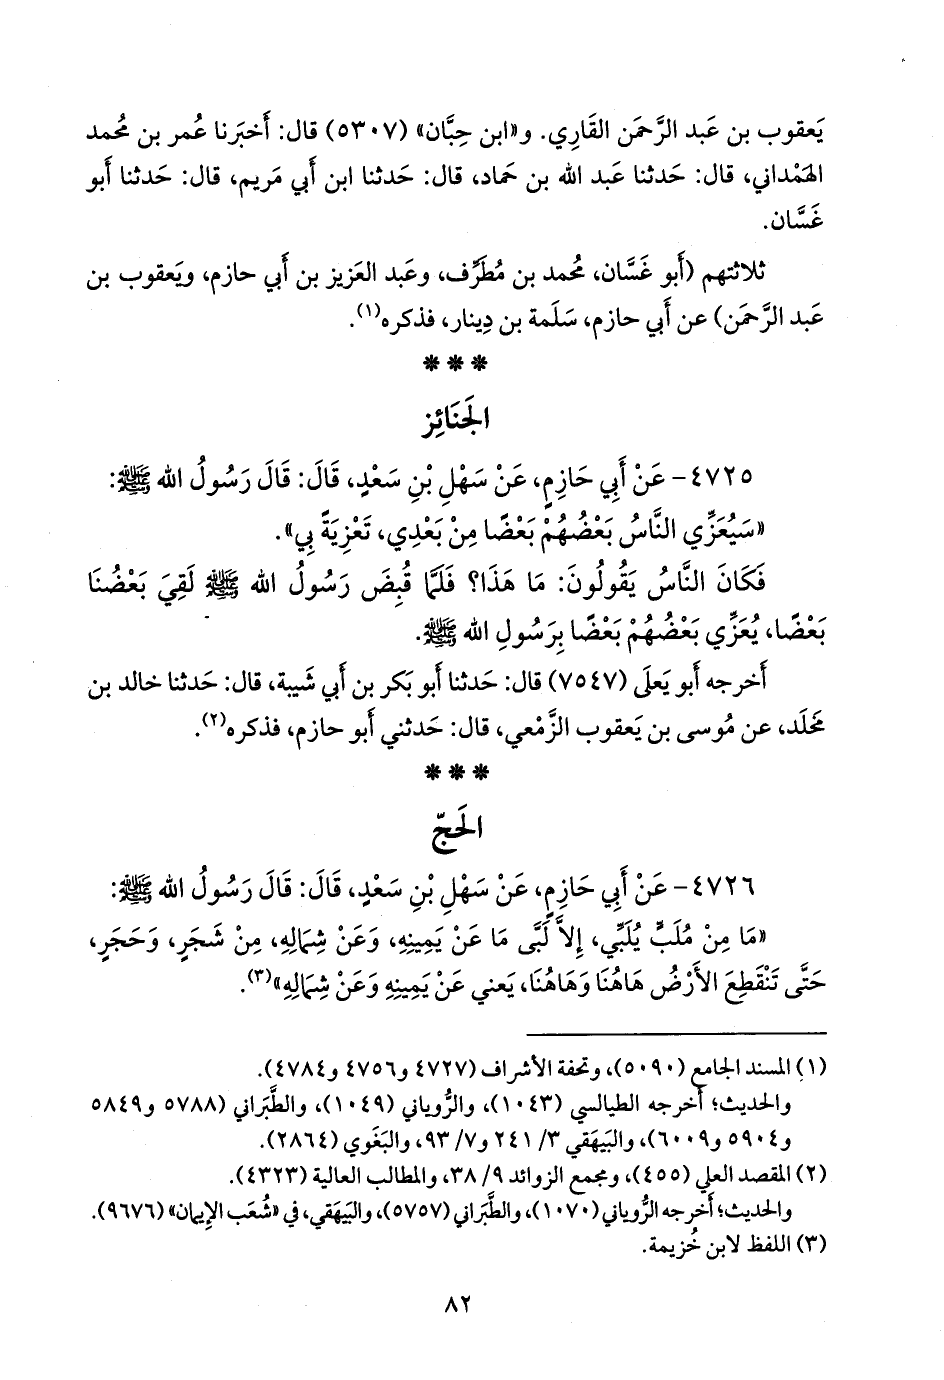 يَعقوب بن عَبد الرَّحمَن القَاري. و«ابن حِبَّان» (٥٣٠٧) قال: أَخبَرنا عُمر بن مُحمد
الهَمْداني، قال: حَدثنا عَبد الله بن حَماد، قال: حَدثنا ابن أَبي مَريم، قال: حَدثنا أَبو
غَسَّان.
ثلاثتهم (أَبو غَسَّان، مُحمد بن مُطَرِّف، وعَبد العَزيز بن أَبي حازم، ويَعقوب بن
عَبد الرَّحمَن) عن أَبي حازم، سَلَمة بن دِينار، فذكره(١).
* * *
الجَنَائِز
٤٧٢٥- عَنْ أَبِي حَازِمٍ، عَنْ سَهْلِ بْنِ سَعْدٍ، قَالَ: قَالَ رَسُولُ الله ﷺ:
«سَيُعَزِّي النَّاسُ بَعْضُهُمْ بَعْضًا مِنْ بَعْدِي، تَعْزِيَةً بِي».
فَكَانَ النَّاسُ يَقُولُونَ: مَا هَذَا؟ فَلَمَّا قُبِضَ رَسُولُ الله ﷺ لَقِيَ بَعْضُنَا
بَعْضًا، يُعَزِّي بَعْضُهُمْ بَعْضًا بِرَسُولِ الله ﷺ.
أَخرجه أَبو يَعلَى (٧٥٤٧) قال: حَدثنا أَبو بَكر بن أَبي شَيبة، قال: حَدثنا خالد بن
مَخلَد، عن مُوسى بن يَعقوب الزَّمْعي، قال: حَدثني أَبو حازم، فذكره(٢).
* * *
الحَجّ
٤٧٢٦- عَنْ أَبِي حَازِمٍ، عَنْ سَهْلِ بْنِ سَعْدٍ، قَالَ: قَالَ رَسُولُ الله ﷺ:
«مَا مِنْ مُلَبٍّ يُلَبِّي، إِلاَّ لَبَّى مَا عَنْ يَمِينِهِ، وَعَنْ شِمَالِهِ، مِنْ شَجَرٍ، وَحَجَرٍ،
حَتَّى تَنْقَطِعَ الأَرْضُ هَاهُنَا وَهَاهُنَا، يَعني عَنْ يَمِينِهِ وَعَنْ شِمَالِهِ»(٣).
(١) المسند الجامع (٥٠٩٠)، وتحفة الأشراف (٤٧٢٧ و٤٧٥٦ و٤٧٨٤).
والحديث؛ أَخرجه الطيالسي (١٠٤٣)، والرُّوياني (١٠٤٩)، والطَّبَراني (٥٧٨٨ و٥٨٤٩
و٥٩٠٤ و٦٠٠٩)، والبَيهَقي ٣/ ٢٤١ و٧/ ٩٣، والبَغَوي (٢٨٦٤).
(٢) المقصد العلي (٤٥٥)، ومجمع الزوائد ٩/ ٣٨، والمطالب العالية (٤٣٢٣).
والحديث؛ أَخرجه الرُّوياني (١٠٧٠)، والطَّبَراني (٥٧٥٧)، والبَيهَقي، في «شُعَب الإيمان» (٩٦٧٦).
(٣) اللفظ لابن خُزيمة.
٨٢